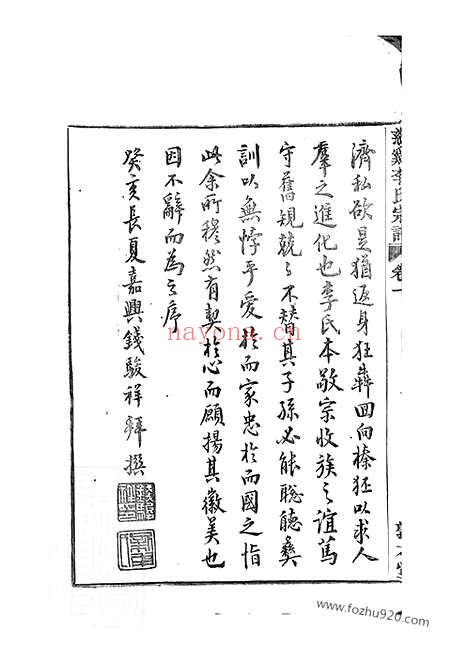 濟私欲是猶返身狂犇回向榛狉以求人
羣之進化也李氏本敬宗收族之誼篤
守舊規兢〻不替其子孫必能聡聽彝
訓以無悖乎愛於而家忠於而國之恉
此余所穆然有契於心而願揚其徽美也
因不辭而為之序
癸亥長夏嘉興錢駿祥拜撰
李氏宗譜 卷一
nayona.cn
www.fozhu920.com